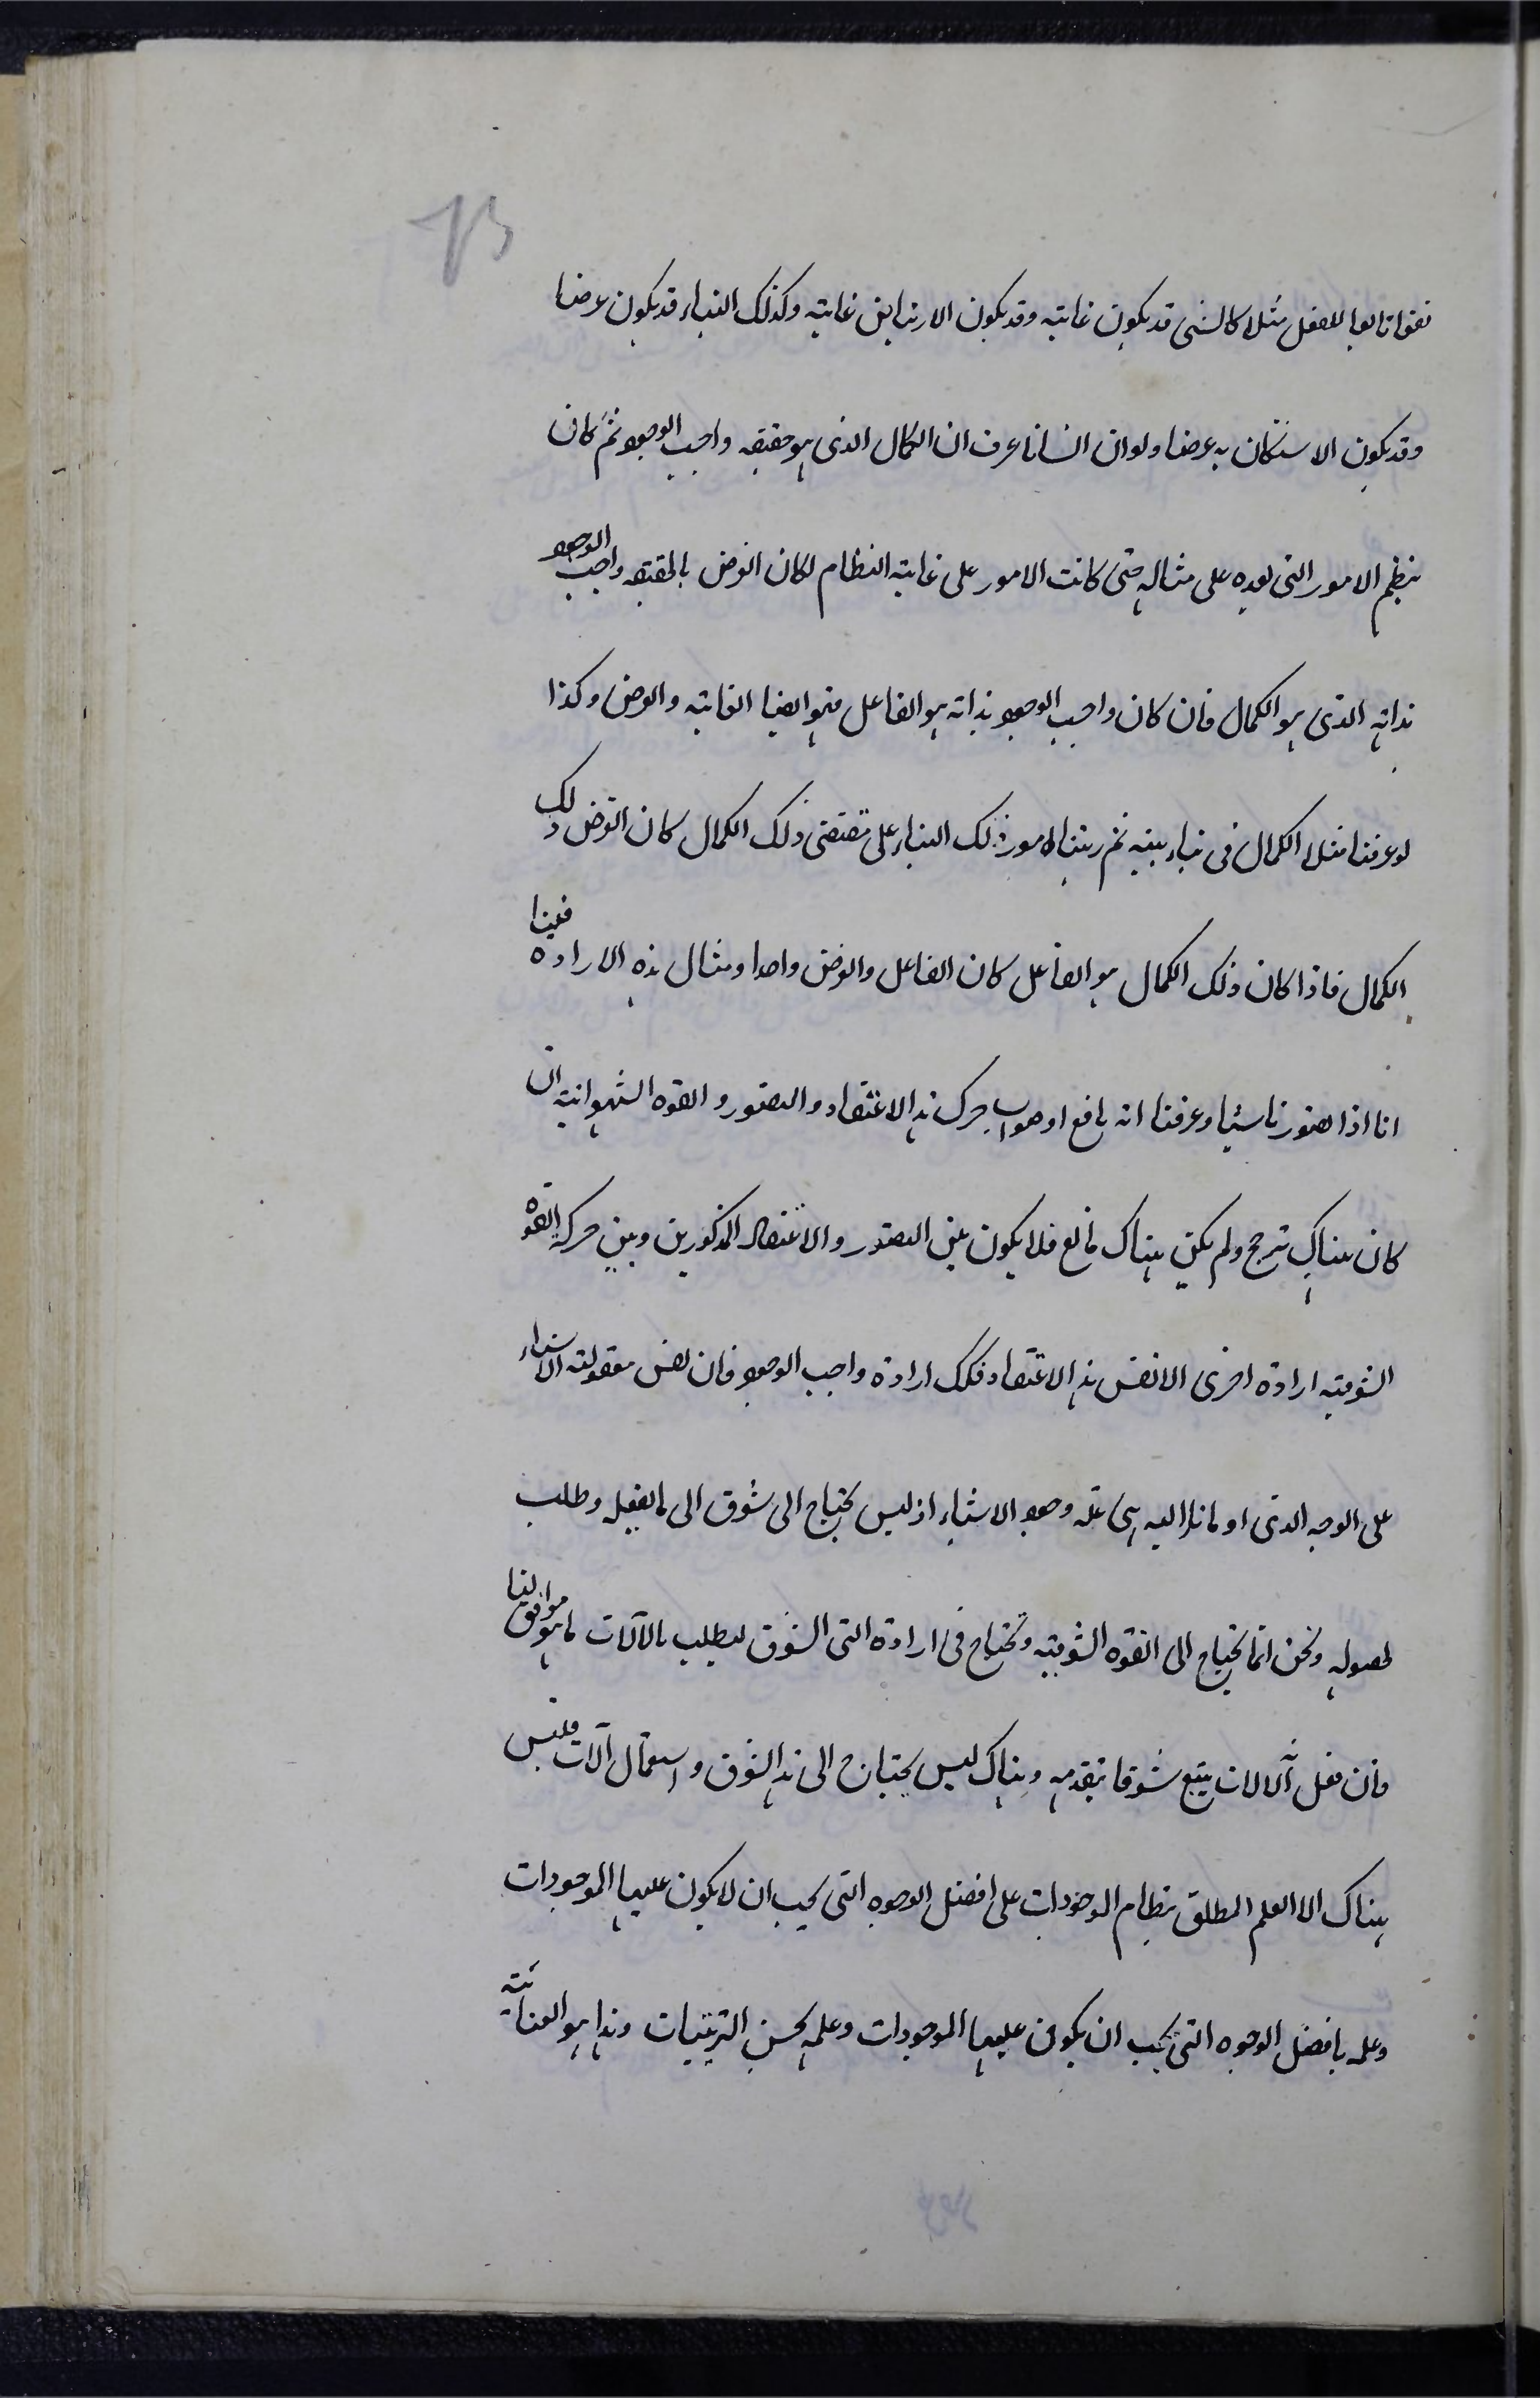 نفعا تابعا للفعل مثلا كالمشى قد يكون غاية وقد يكون الارتياض غاية وكذلك البناء قد يكون غرضا
وقد يكون الاستكنان به غرضا ولو ان انسانا عرف ان الكمال الذى هو حقيقه واجب الوجود ثم كان
ينظم الامور التى بعده على مثاله حتى كانت الامور على غاية النظام لكان الغرض بالحقيقه واجب الوجود
بذاته الذى هو الكمال فان كان واجب الوجود بذاته هو الفاعل فهو ايضا الغاية والغرض وكذا
لو عرفنا مثلا الكمال فى بناء نبنيه ثم رتبنا امور ذلك البناء على مقتضى ذلك الكمال كان الغرض ذلك
الكمال فاذا كان ذلك الكمال هو الفاعل كان الفاعل والغرض واحدا ومثال هذه الارادة فينا
انا اذا تصورنا شيئا وعرفنا انه نافع او صواب حرك هذا الاعتقاد والتصور القوه الشهوانية ان
كان هناك ترجح ولم يكن هناك مانع فلا يكون بين التصور والاعتقاد المذكورين وبين حركه القوة
الشوقية ارادة اخرى الا نفس هذا الاعتقاد فكذلك ارادة واجب الوجود فان نفس معقولية الاشياء
على الوجه الذى اومانا اليه هى علة وجود الاشياء اذ ليس يحتاج الى شوق الى ما يفعله وطلب
لحصوله ونحن انما نحتاج الى القوه الشوقية ونحتاج فى ارادة التى الشوق ليطلب بالآلات ما هو موافق لنا
فان فعل الآلات يتبع شوقا يتقدمه وهناك ليس يحتاج الى هذا الشوق واستعمال آلات فليس
هناك الا العلم المطلق بنظام الموجودات على افضل الوجوه التى يجب ان لا يكون عليها الموجودات
وعلمه بافضل الوجوه التى يجب ان يكون عليها الموجودات وعلمه بحسن الترتيبات وهذا هو العناية